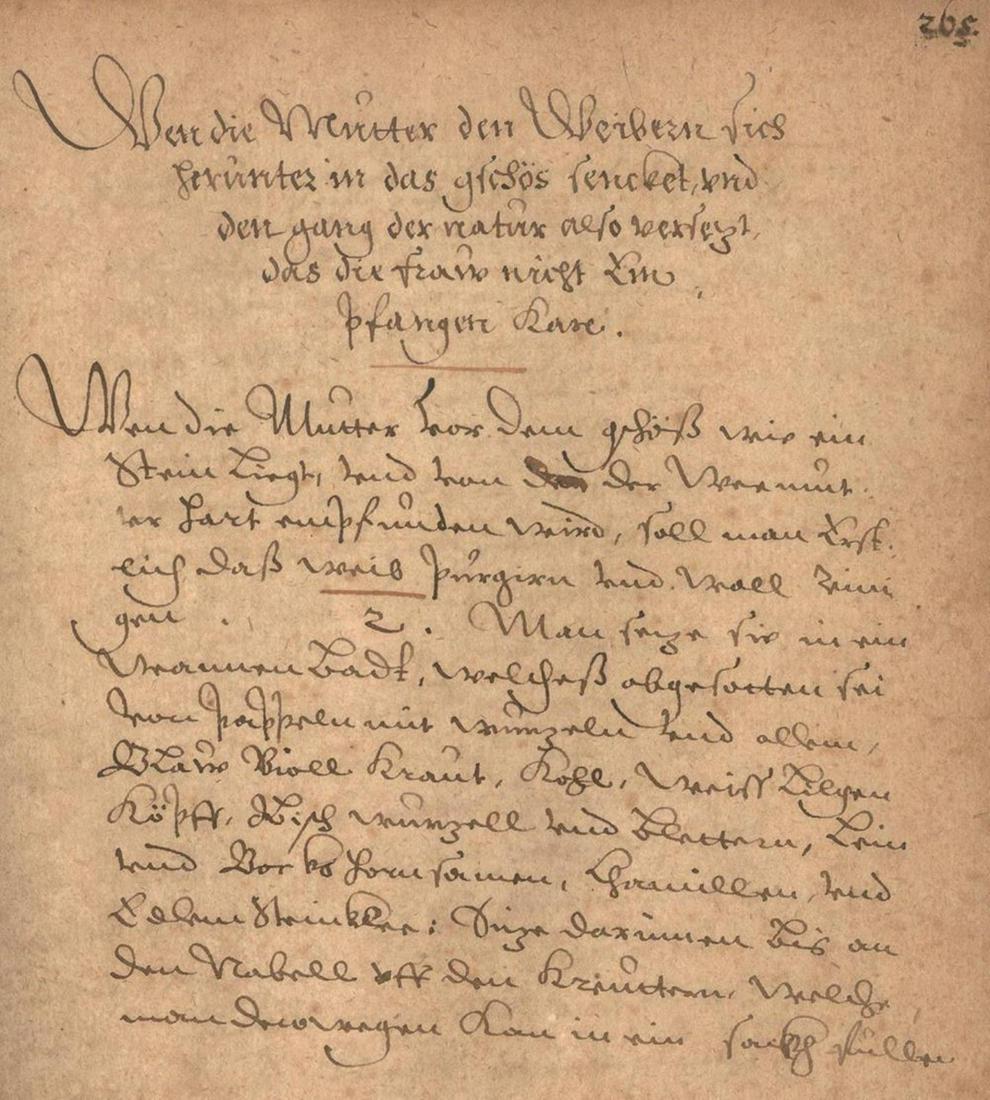 265.
Wen die Mutter den Weibern sich
herunter in das gschös sencket, vnd
den gang der natur also versezt,
das die fraw nicht Em
pfangen Kan.
Wen die Mutter vor dem gschöß wie ein
Stein Liegt, vnd von der Weemut
ter hart empfunden wird, soll man Erst
lich daß weib purgirn vnd woll reini
gen. 2. Man seze sie in ein
Wannen Badt, welcheß abgesotten sei
von pappeln mit wurzeln vnd allem,
Blaw Violl Kraut, Kohl, Weiss Lilgen
Köpff, Ibisch wurzell vnd Blettern, Lein
vnd Bocks hornsamen, Chamillen, vnd
Edlem Steinklee: Size darinnen bis an
den Nabell vff den Kreuttern, Welche
man deswegen Kan in ein sackh füllen